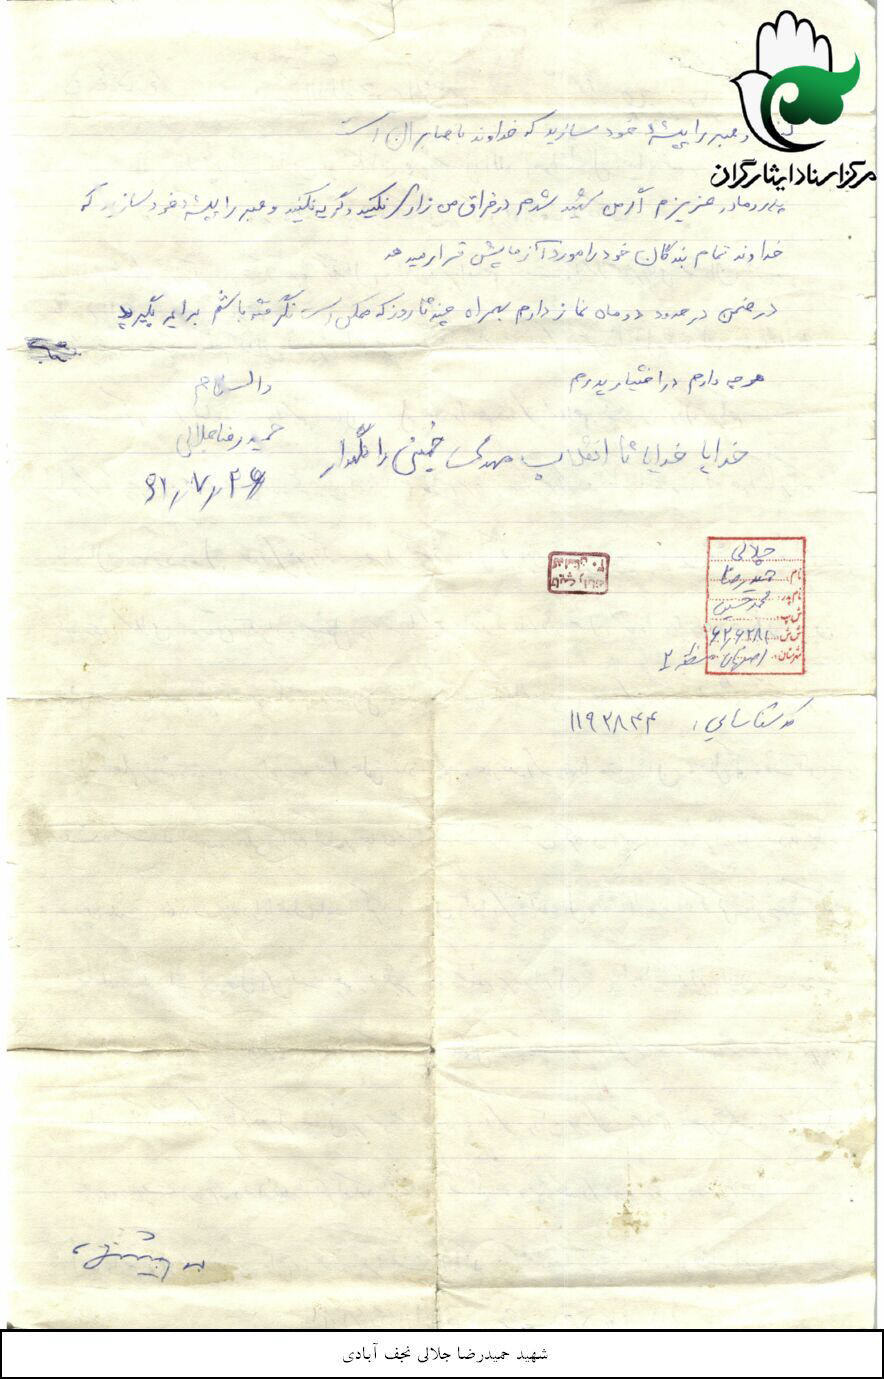 مرکز اسناد ایثارگران
و صبر را پیشه خود سازید که خداوند با صابران است
پدر و مادر عزیزم اگر من شهید شدم در فراق من زاری نکنید و گریه نکنید و صبر را پیشه خود سازید که
خداوند تمام بندگان خود را مورد آزمایش قرار میدهد
در ضمن در حدود دو ماه نماز دارم بهمراه چند تا روزه که ممکن است نگرفته باشم برایم بگیرید
هرچه دارم در اختیار پدرم
والسلام
حمیدرضا جلالی
خدایا خدایا تا انقلاب مهدی خمینی را نگهدار
۶۱/۷/۲۶
جلالی
نام: حمیدرضا
نام پدر: محمدحسین
ش پ:
ش ش:
شهرستان: اصفهان منطقه ۲
کد شناسایی: ۱۱۹۲۸۴۴
شهید حمیدرضا جلالی نجف آبادی